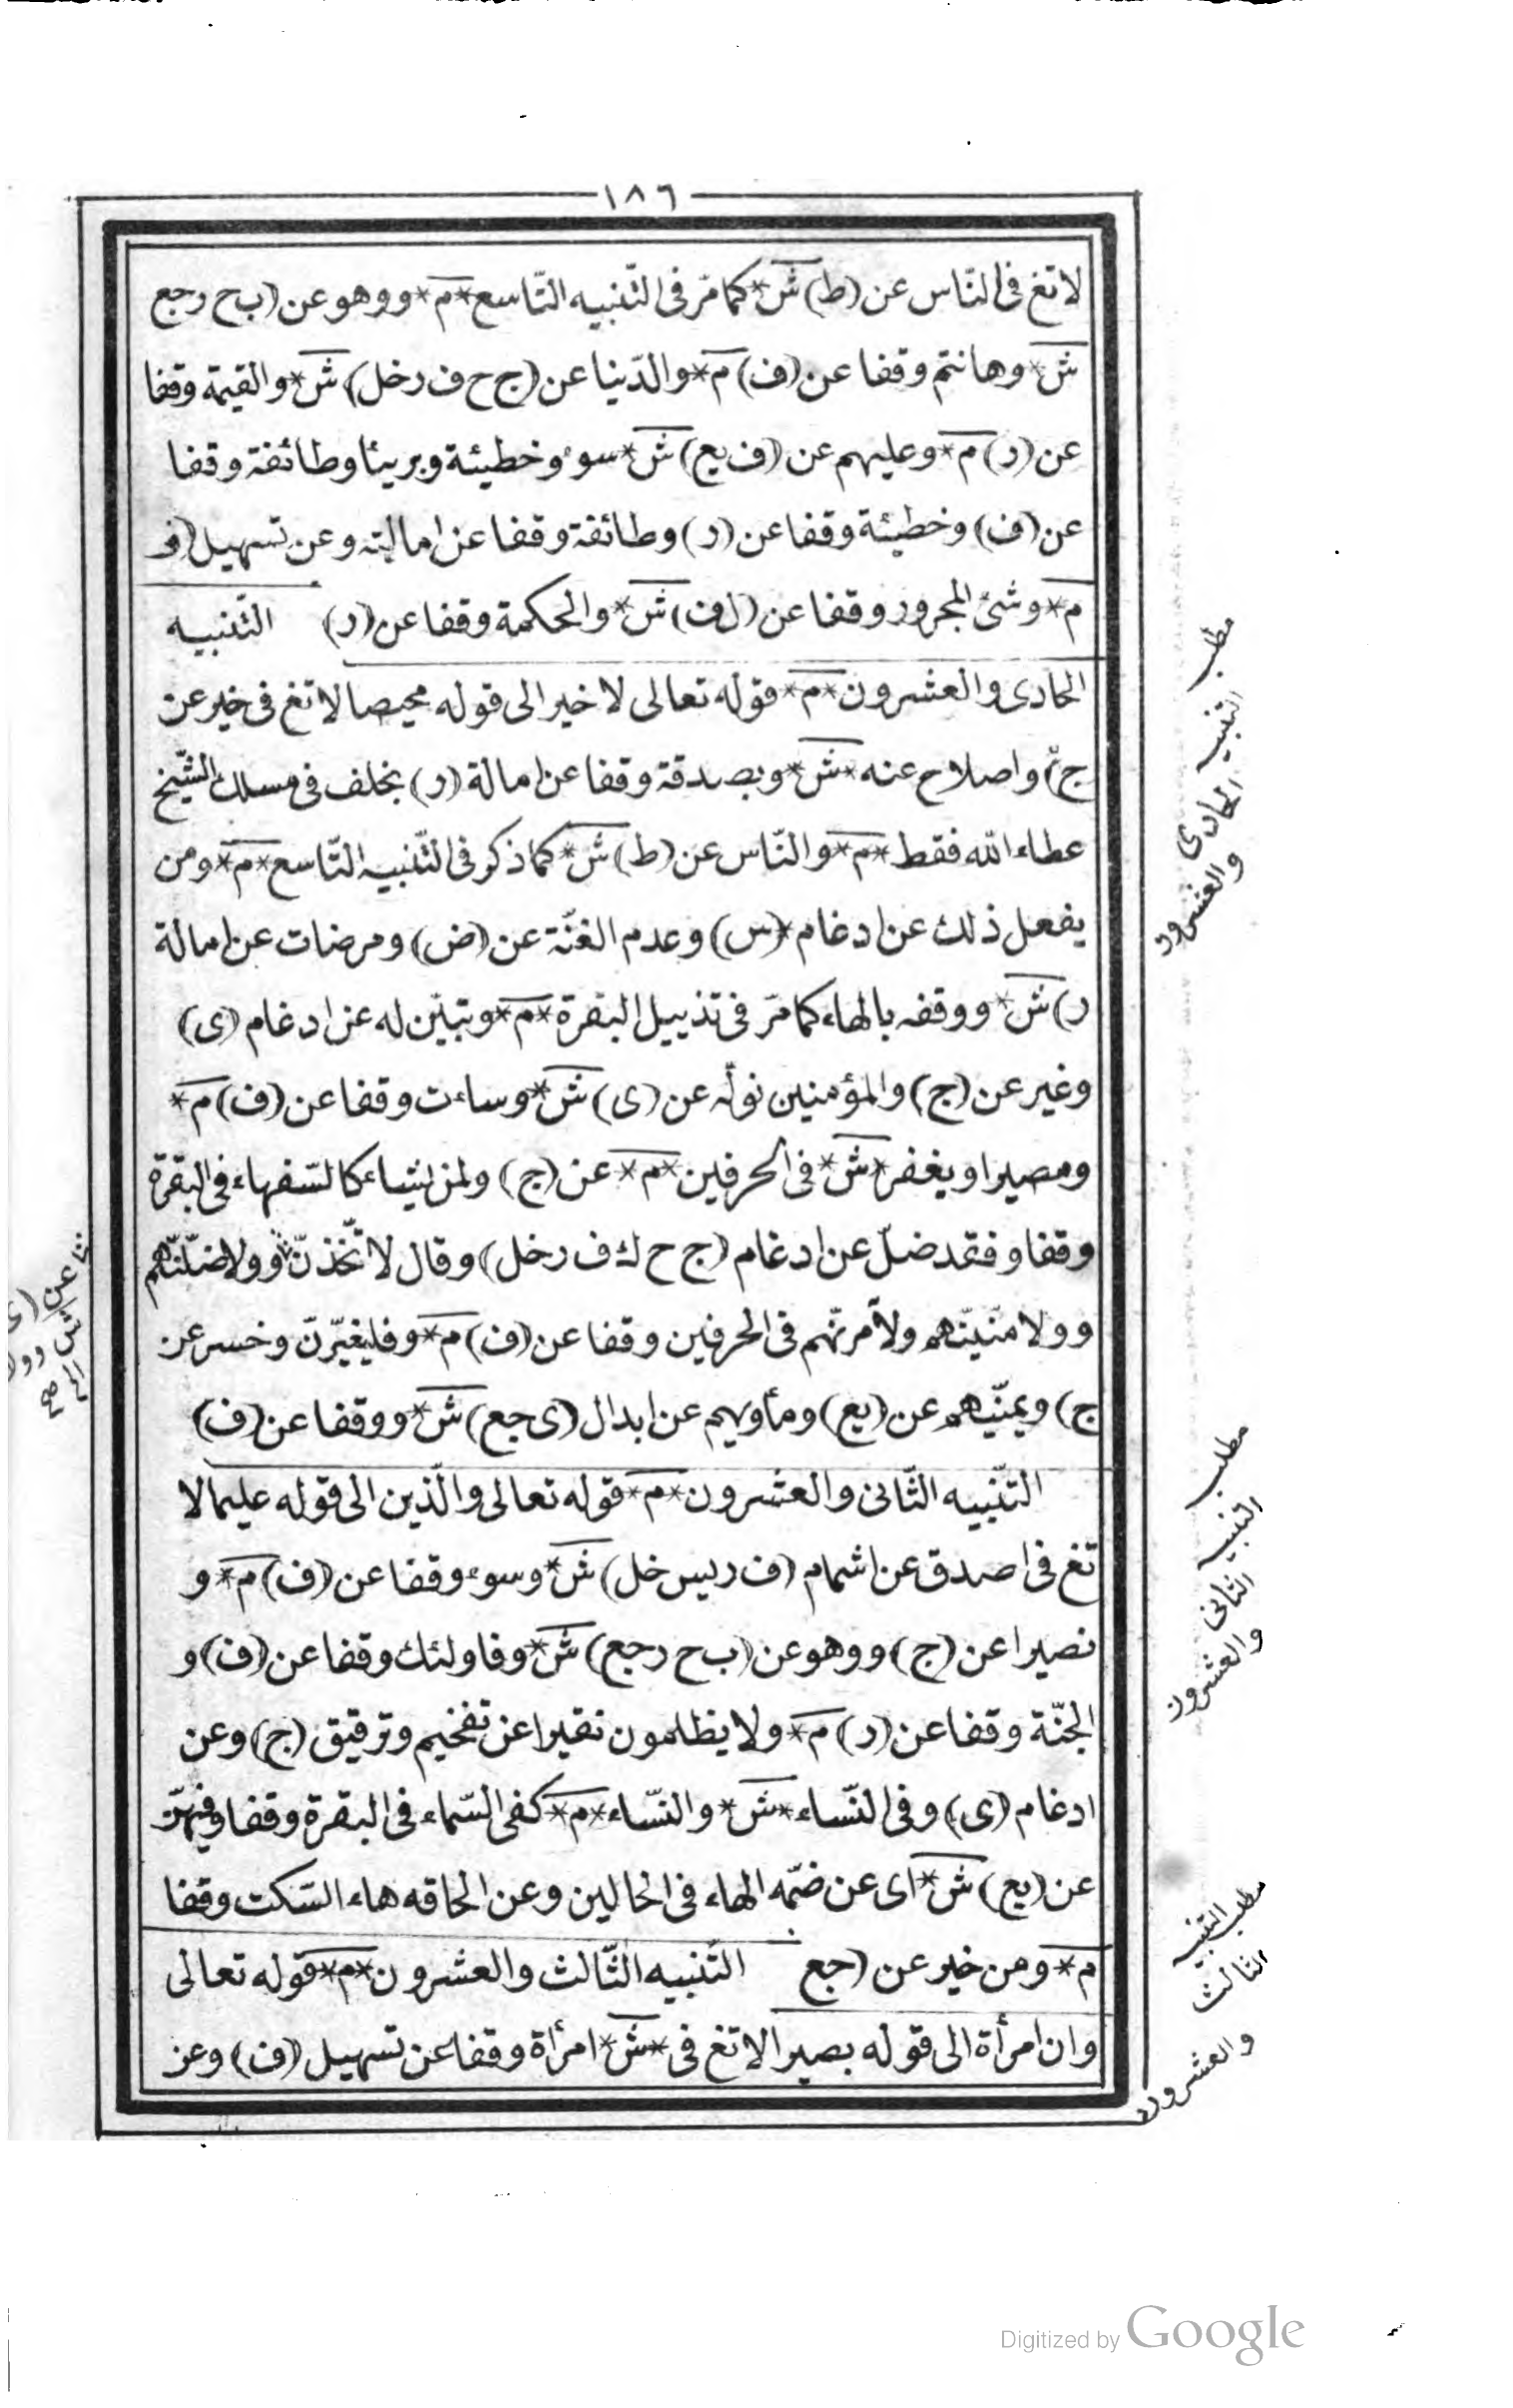 ١٨٦
لا تغ فى النّاس عن (ط) ش* كما مرّ فى التّنبيه التّاسع *م* ووهو عن (ب ح رجع
ش* وهانتم وقفا عن (ف) م* والدّنيا عن (ج ح ف رخل) ش* والقيمة وقفا
عن (ر) م* وعليهم عن (ف يع) ش* سوء وخطيئة وبريئا وطائفة وقفا
عن (ف) وخطيئة وقفا عن (ر) وطائفة وقفا عن امالته وعن تسهيل (ف
م* وشئ المجرور وقفا عن (ل ف) ش* والحكمة وقفا عن (ر) التّنبيه
الحادى والعشرون *م* قوله تعالى لا خير الى قوله محيصا لا تغ فى خير عن
ج) واصلاح عنه *ش* وبصدقة وقفا عن امالة (ر) بخلف فى مسلك الشّيخ
عطاء الله فقط *م* والنّاس عن (ط) ش* كما ذكر فى التّنبيه التّاسع *م* ومن
يفعل ذلك عن ادغام *(س) وعدم الغنّة عن (ض) ومرضات عن امالة
ر) ش* ووقفه بالهاء كما مرّ فى تذييل البقرة *م* وتبيّن له عن ادغام (ى)
وغير عن (ج) والمؤمنين نولّه عن (ى) ش* وساءت وقفا عن (ف) م*
ومصيرا ويغفر *ش* فى الحرفين *م* عن (ج) ولمن يشاء كالسّفهاء فى البقرة
وقفا وفقد ضلّ عن ادغام (ج ح ك ف رخل) وقال لاتّخذنّ وولاضلّنّهم
وولامنّينّهم ولآمرنّهم فى الحرفين وقفا عن (ف) م* وفليغيّرنّ وخسر عن
ج) ويمنّيهم عن (يع) ومأويهم عن ابدال (ى جع) ش* ووقفا عن (ف)
التّنبيه الثّانى والعشرون *م* قوله تعالى والّذين الى قوله عليما لا
تغ فى اصدق عن اشمام (ف ريس خل) ش* وسوء وقفا عن (ف) م* و
نصيرا عن (ج) ووهو عن (ب ح رجع) ش* وفاولئك وقفا عن (ف) و
الجنّة وقفا عن (ر) م* ولا يظلمون نقيرا عن تفخيم وترقيق (ج) وعن
ادغام (ى) وفى النّساء *ش* والنّساء *م* كفى السّماء فى البقرة وقفا وفيهنّ
عن (يع) ش* اى عن ضمّه الهاء فى الحالين وعن الحاقه هاء السّكت وقفا
م* ومن خير عن (جع التّنبيه الثّالث والعشرون *م* قوله تعالى
وان امرأة الى قوله بصيرا لا تغ فى *ش* امرأة وقفا عن تسهيل (ف) وعن
مطلب
التنبيه
الحادى
والعشرون
مطلب
التنبيه
الثانى
والعشرون
مطلب التنبيه
الثالث
والعشرون
عن (ى
ش وو
صح
Digitized by Google